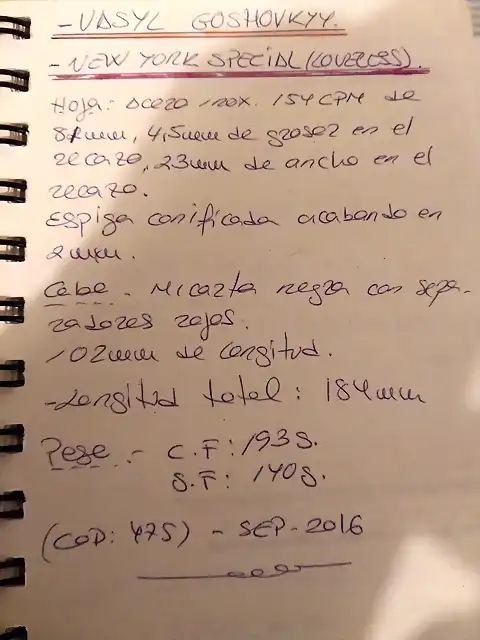 - VASYL GOSHOVKYY.
- NEW YORK SPECIAL (LOVELESS).
Hoja: Acero inox. 154CPM de
82mm, 4,5mm de grosor en el
recazo, 23mm de ancho en el
recazo.
Espiga conificada acabando en
2mm.
Cabo. Micarta negra con sepa-
radores rojos.
102mm de longitud.
- Longitud total: 184mm
Peso.- C.F: 193g.
S.F: 140g.
(COD: 475) - SEP-2016